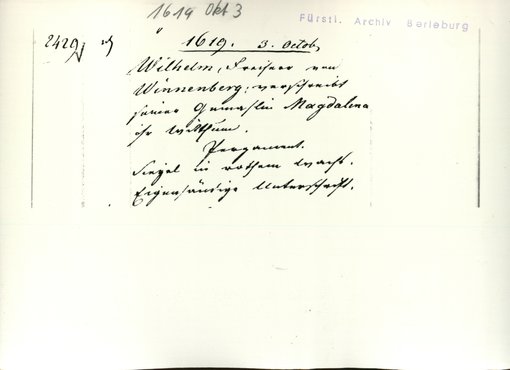 1619 Okt 3
Fürstl. Archiv Berleburg
2429
1619. 3. Octob.
Wilhelm, Freiherr von
Winnenberg, verschreibt
seiner Gemahlin Magdalena
ihr Witthum.
Pergament.
Siegel in rothem Wachs.
Eigenhändige Unterschrift.